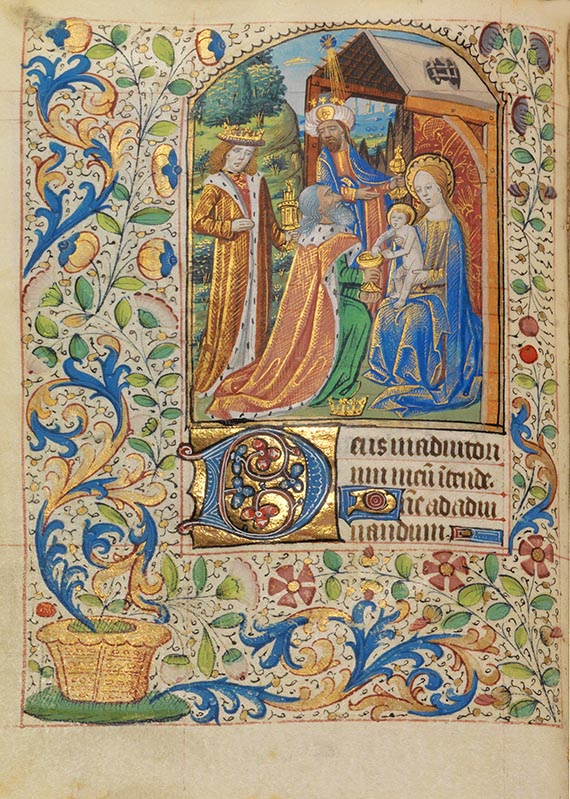 Deus in adiutori
um meū ītende.
Dn̄e ad adiu
uandum.